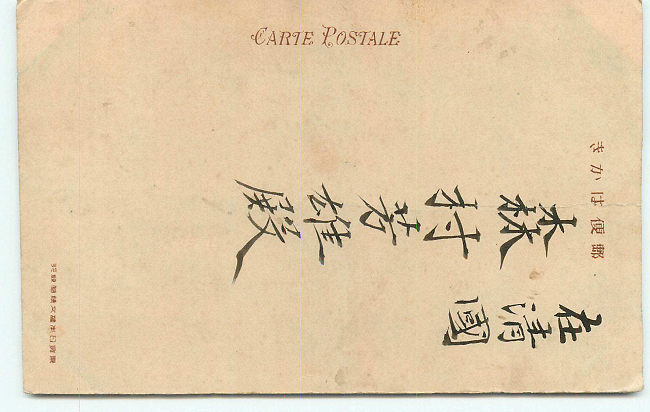 CARTE POSTALE
郵便はかき
在清國
森村芳雄殿